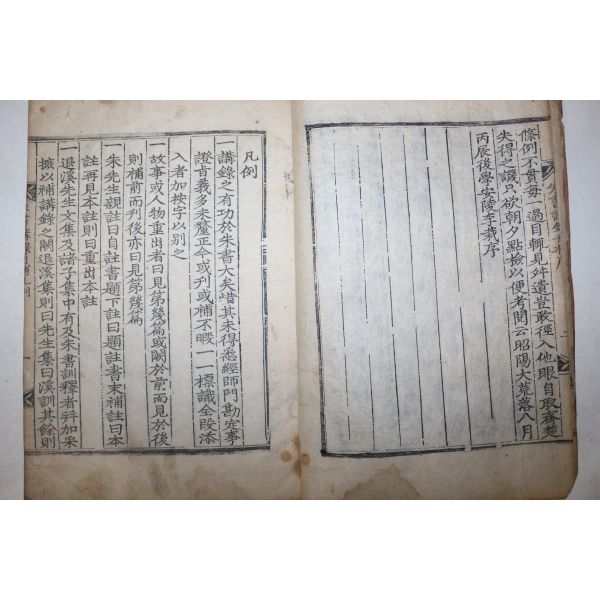 條例不貫每一過目輒見舛遺豈敢徑入他眼自取齋楚
失得之譏只欲朝夕點檢以便考閱云昭陽大荒落八月
丙辰後學安陵李栽序
凡例
一講錄之有功於朱書大矣惜其未得悉經師門勘定事
證旨義多未釐正今或刊或補不暇一一標識全段添
入者加按字以別之
一故事或人物重出者曰見第幾篇或闕於前而見於後
則補前而刊後亦曰見第幾篇
一朱先生親註曰自註書題下註曰題註書末補註曰本
註再見本註則曰重出本註
一退溪先生文集及諸子集中有及朱書訓釋者幷加采
摭以補講錄之闕退溪集則曰先生集曰溪訓其餘則